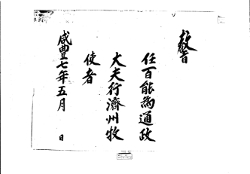 敎旨
任百能爲通政
大夫行濟州牧
使者
咸豐七年五月 日